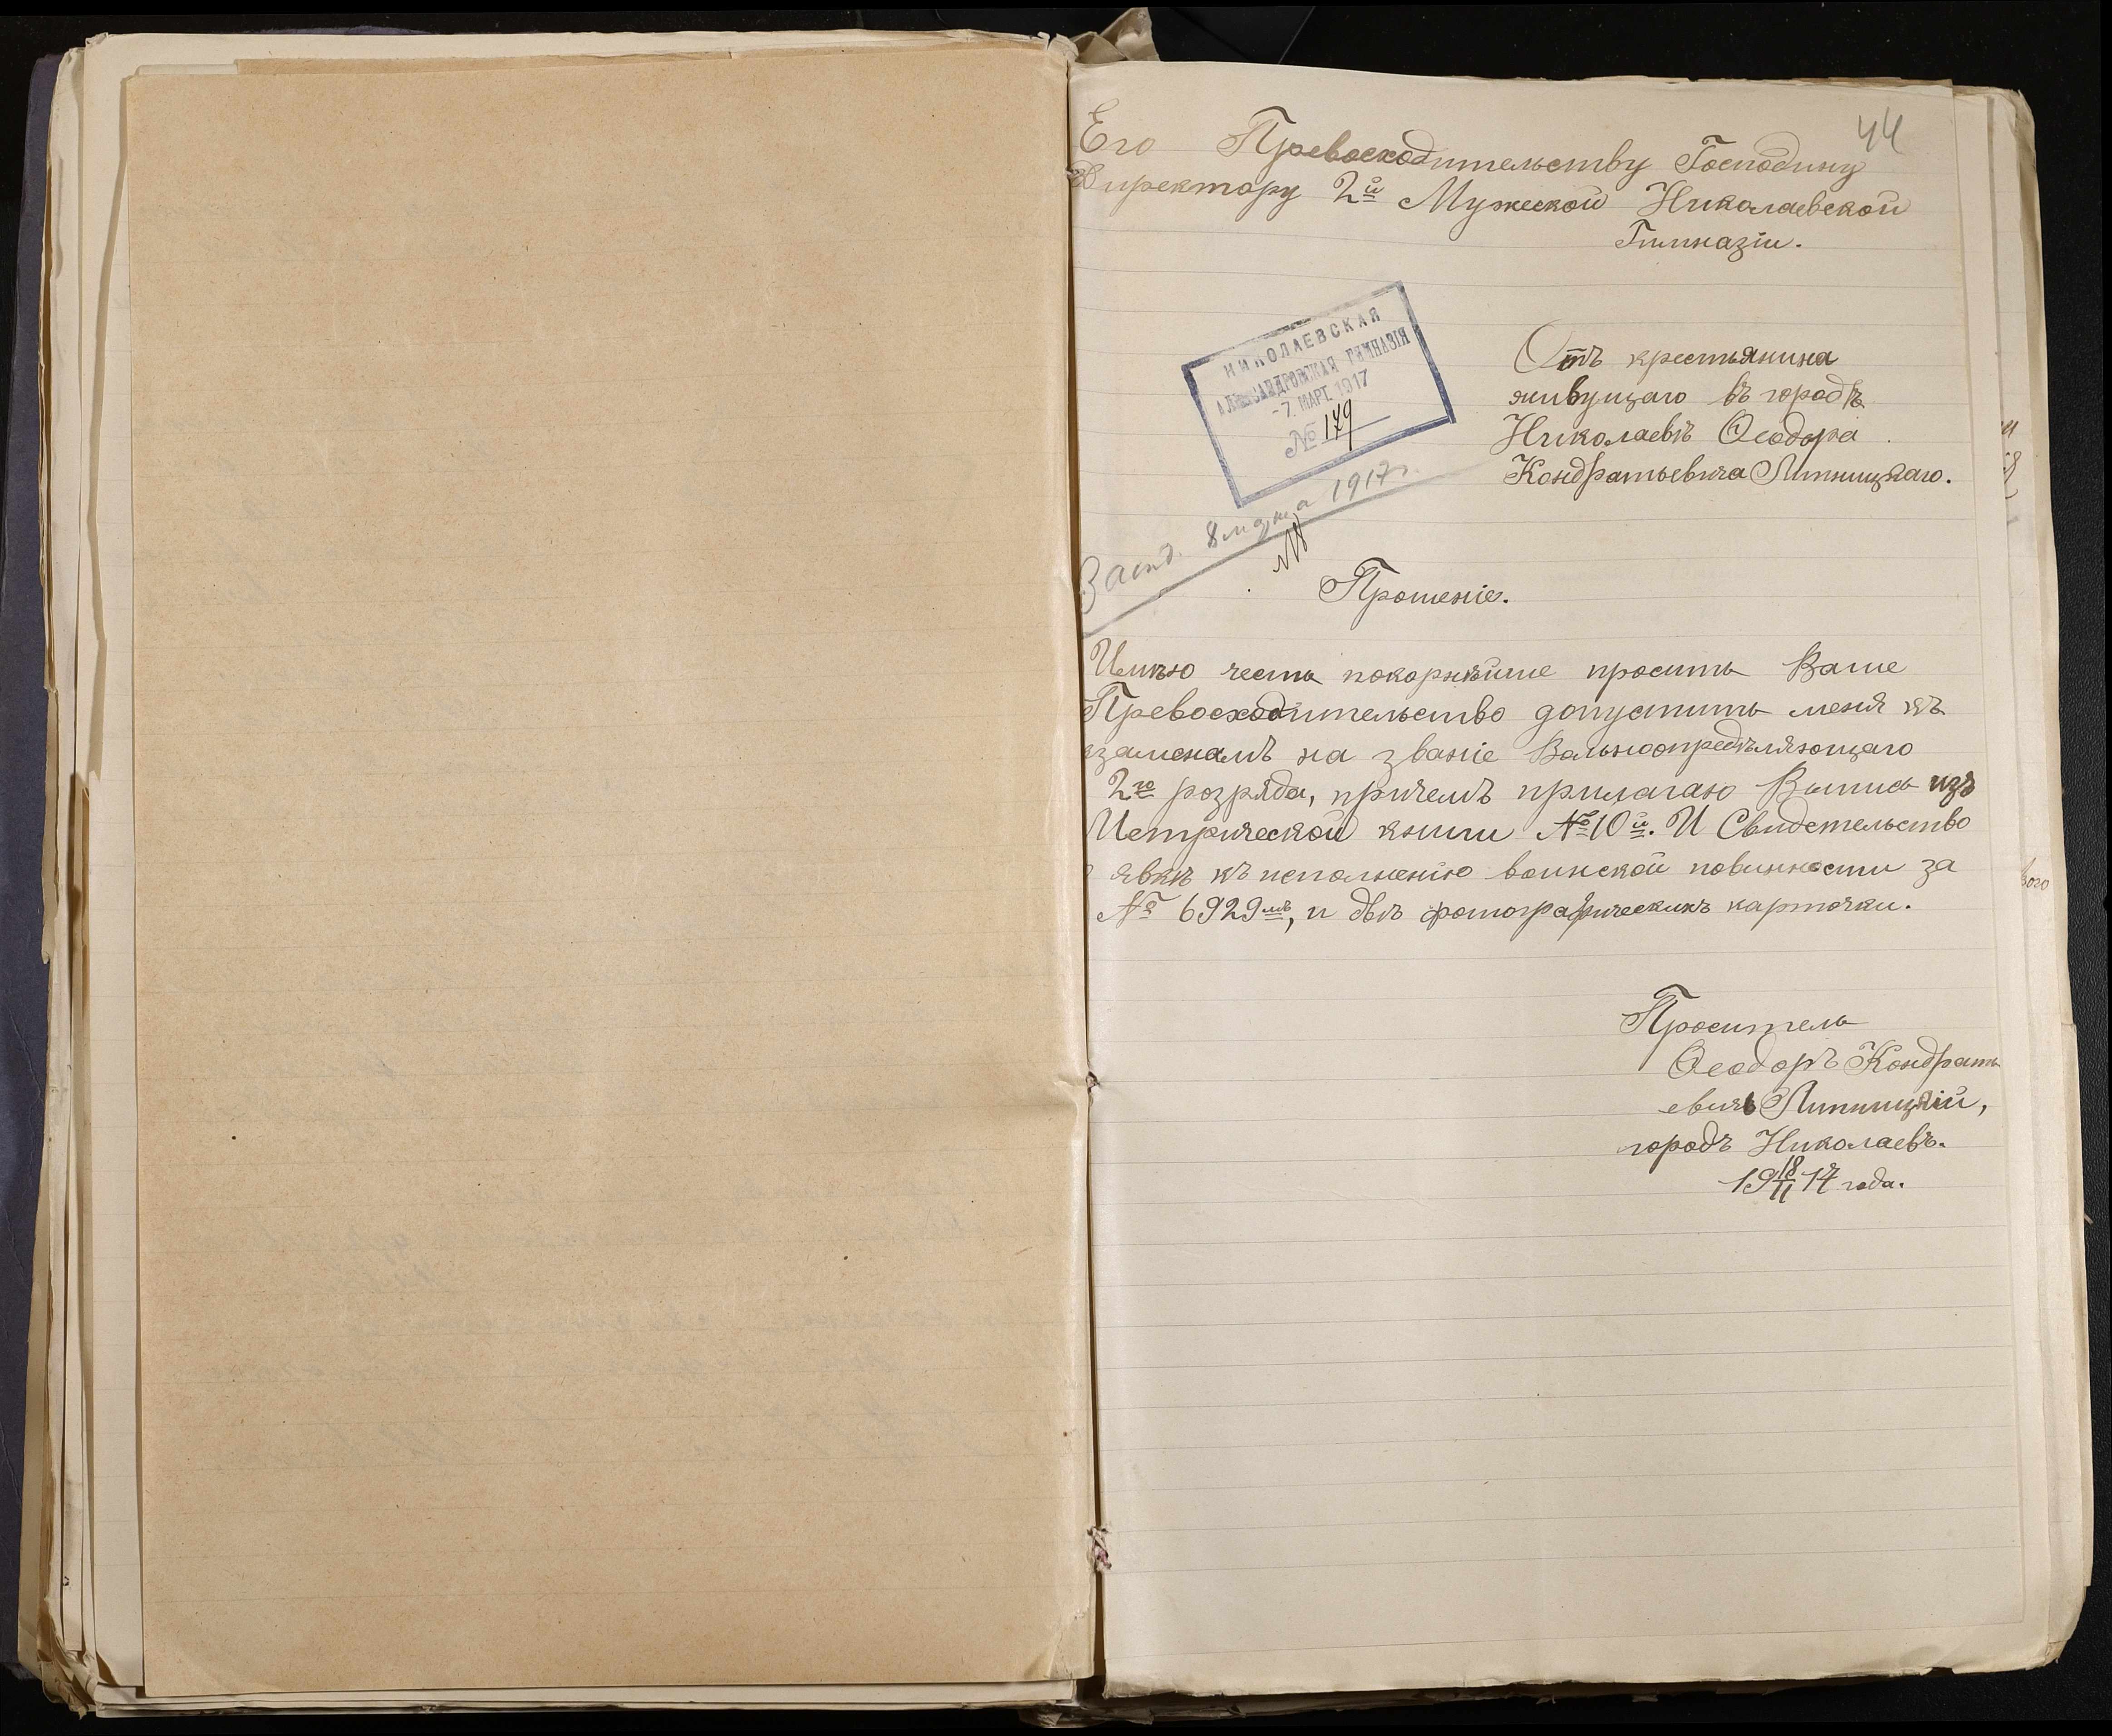 44
Его Превосходительству Господину
Директору 2й Мужеской Николаевской
Гимназіи.
НИКОЛАЕВСКАЯ
АЛЕКСАНДРОВСКАЯ ГИМНАЗІЯ
-7. МАРТ. 1917
№ 179
Отъ крестьянина
живущаго въ городѣ
Николаевѣ Ѳеодора
Кондратьевича Липницкаго.
8 марта 1917 г.
Прошеніе.
Имѣю честь покорнѣйше просить Ваше
Превосходительство допустить меня къ
экзаменамъ на званіе Вольноопредѣляющаго
2го розряда, причемъ прилагаю Выпись изъ
Метрической книги № 10й. И Свидетельство
о явкѣ къ исполненію воинской повинности за
№ 6929мъ, и двѣ фотографическихъ карточки.
Проситель
Ѳеодоръ Кондрать
евичъ Липницкій,
городъ Николаевъ.
19 18/II 17 года.